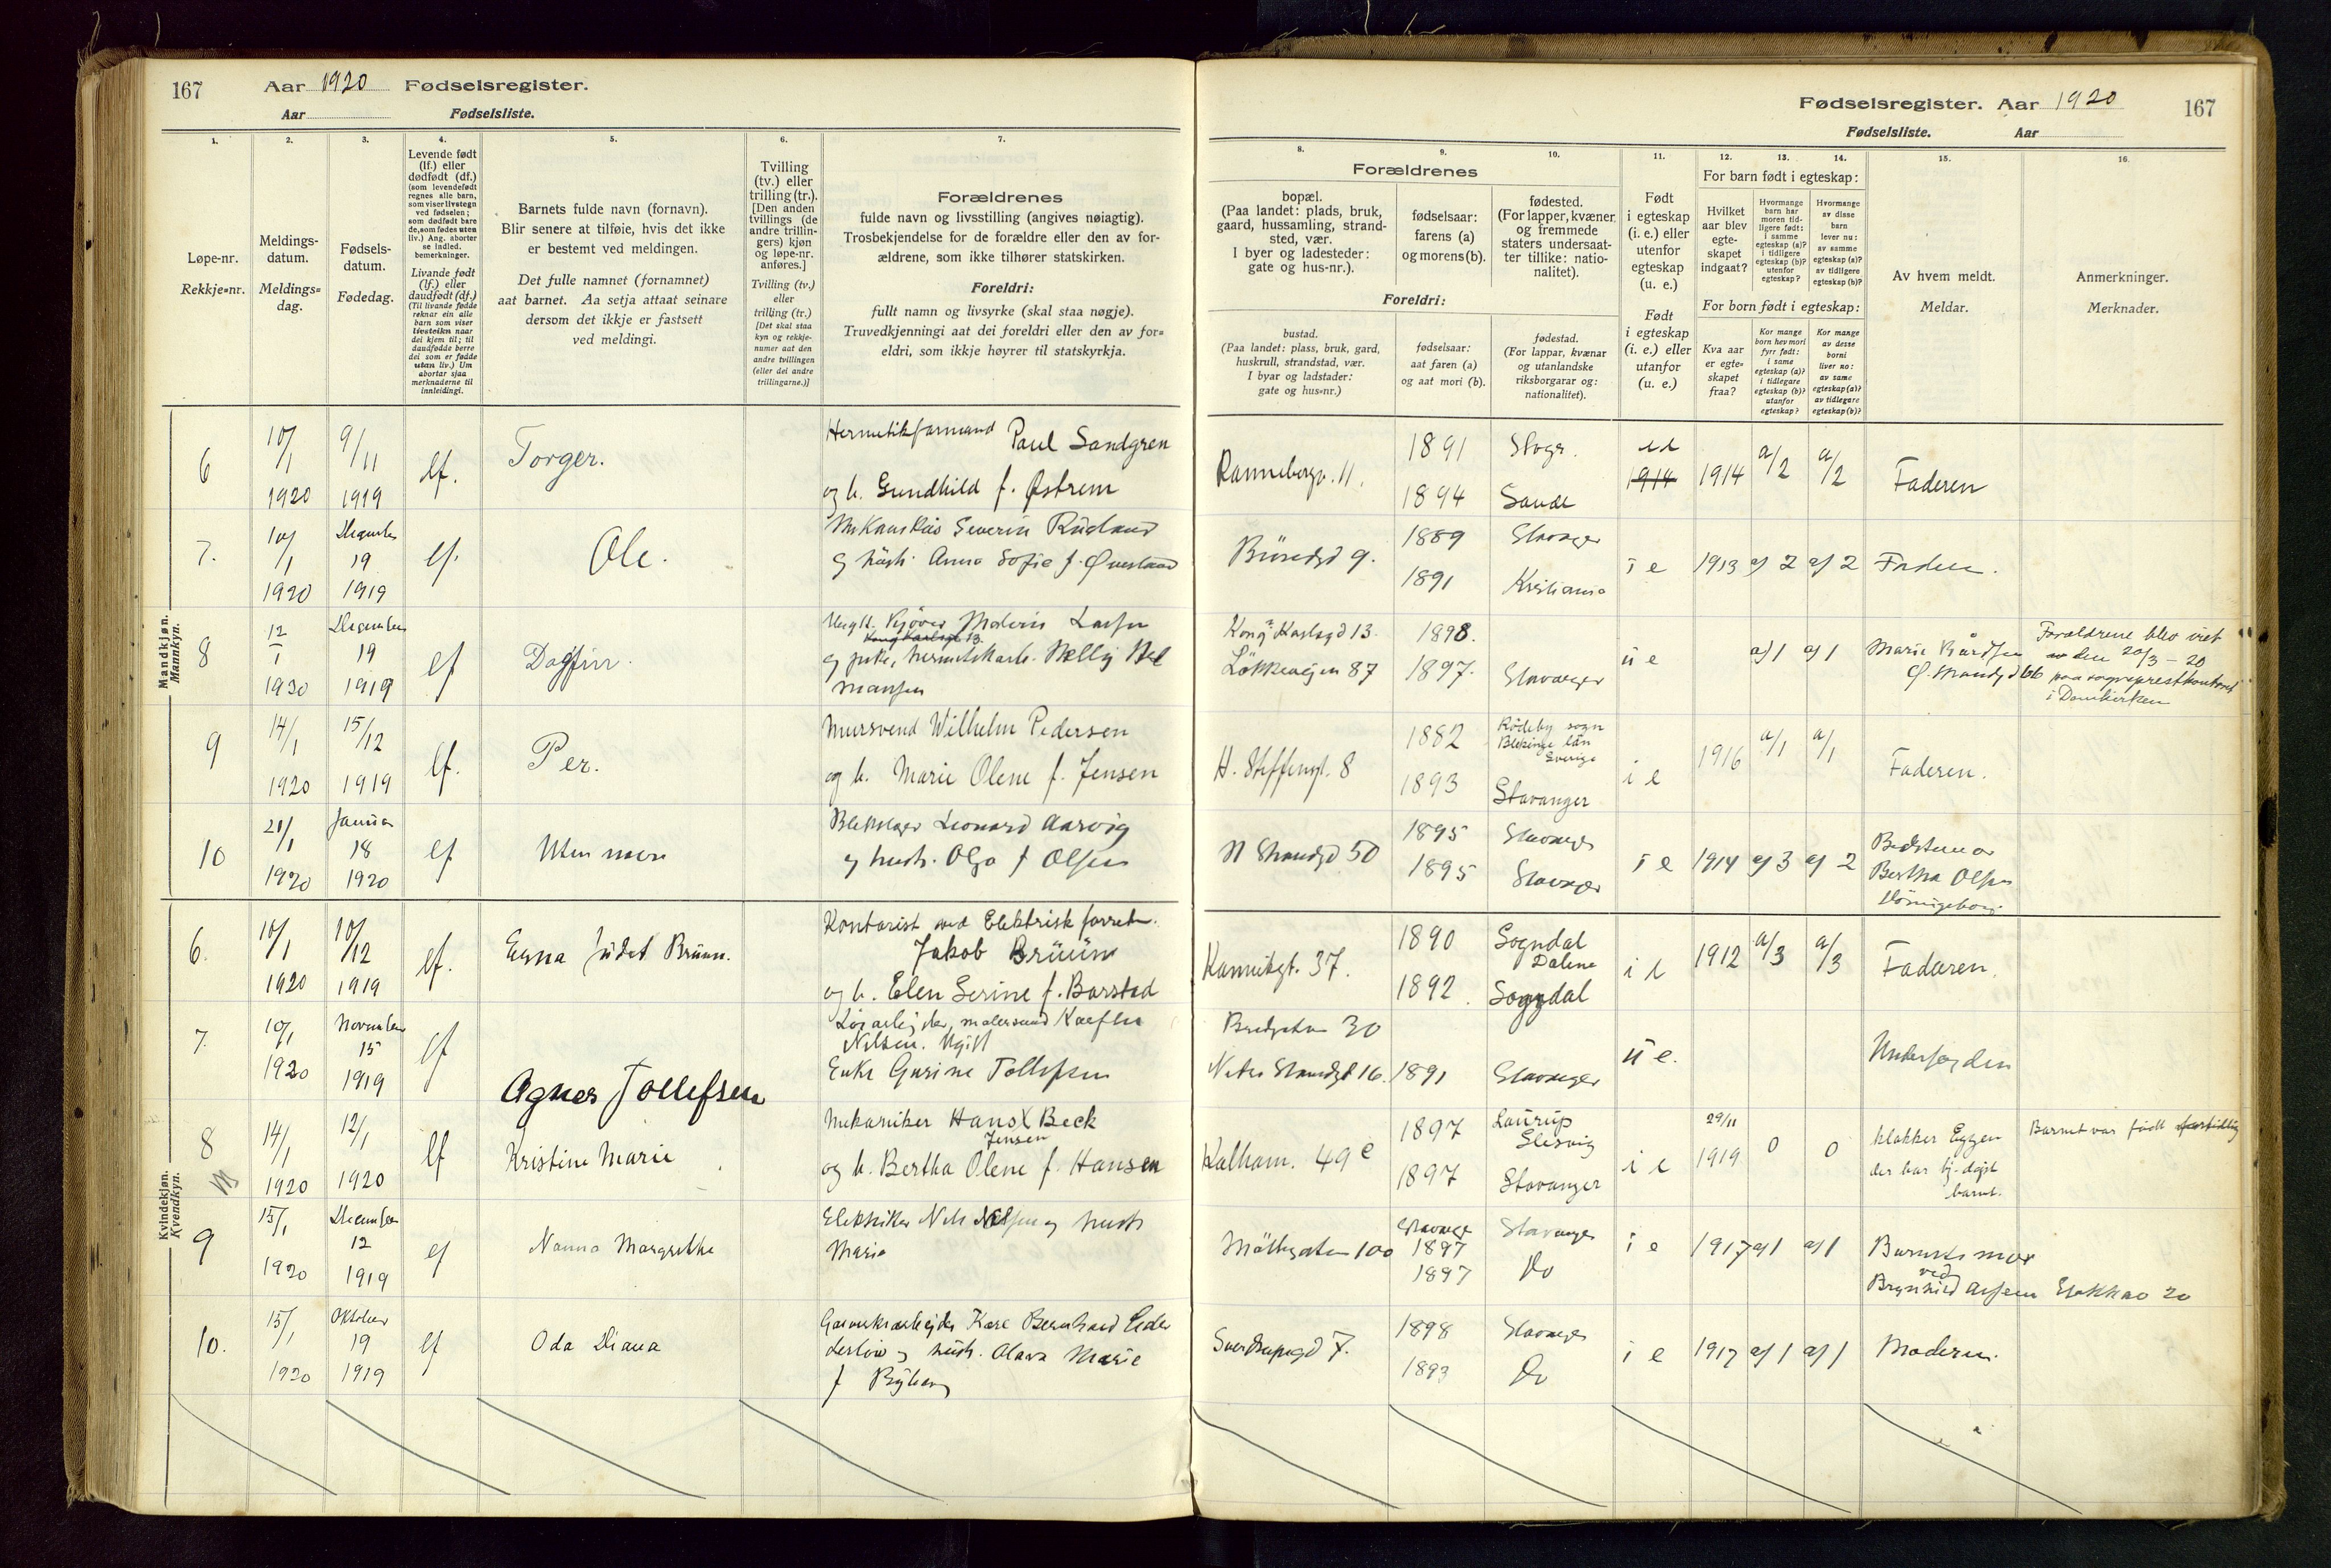 167 Aar 1920 Fødselsregister.
Aar Fødselsliste.
1. 2. 3. 4. 5. 6. 7.
Løpe-nr.
Rekkje=nr.
Meldings-
datum.
Meldings=
dag.
Fødsels-
datum.
Fødedag.
Levende født
(lf.) eller
dødfødt (df.)
(som levendefødt
regnes alle barn,
som viser livstegn
ved fødselen;
som dødfødt bare
de, som fødes uten
liv.) Ang. aborter
se indled.
bemerkninger.
Livande født
(lf.) eller
daudfødt (df.)
(Til livande fødde
reknar ein alle
barn som viser
livsteikn naar
dei kjem til; til
daudfødde berre
dei som er fødde
utan liv.) Um
abortar sjaa
merknaderne til
innleidingi.
Barnets fulde navn (fornavn).
Blir senere at tilføie, hvis det ikke
er bestemt ved meldingen.
Det fulle namnet (fornamnet)
aat barnet. Aa setja attaat seinare
dersom det ikkje er fastsett
ved meldingi.
Tvilling
(tv.) eller
trilling (tr.).
[Den anden
tvillings (de
andre trillin-
gers) kjøn
og løpe-nr.
anføres.]
Tvilling (tv.)
eller
trilling (tr.)
[Det skal staa
kyn og rekkje-
numer aat den
andre tvillingen
(eller dei andre
trillingarne.)]
Forældrenes
fulde navn og livsstilling (angives nøiagtig).
Trosbekjendelse for de forældre eller den av for-
ældrene, som ikke tilhører statskirken.
Foreldri:
fullt namn og livsyrke (skal staa nøgje).
Truvedkjenningi aat dei foreldri eller den av for=
eldri, som ikkje høyrer til statskyrkja.
Fødselsregister. Aar 1920 167
Fødselsliste. Aar
8. 9. 10. 11. 12. 13. 14. 15. 16.
Forældrenes
bopæl.
(Paa landet: plads, bruk,
gaard, hussamling, strand-
sted, vær.
I byer og ladesteder:
gate og hus-nr.).
fødselsaar:
farens (a)
og morens (b).
fødested.
(For lapper, kvæner
og fremmede
staters undersaat-
ter tillike: natio-
nalitet).
Foreldri:
bustad.
(Paa landet: plass, bruk, gard,
huskrull, strandstad, vær.
I byar og ladstader:
gate og hus=nr.)
fødselsaar:
aat faren (a)
og aat mori (b).
fødestad.
(For lappar, kvænar
og utanlandske
riksborgarar og:
nationalitet).
Født
i egteskap
(i. e.) eller
utenfor
egteskap
(u. e.)
Født
i egteskap
(i. e.) eller
utanfor
(u. e.)
For barn født i egteskap:
Hvilket
aar blev
egte-
skapet
indgaat?
Hvormange
barn har
moren tid-
ligere født:
i samme
egteskap (a)?
i tidligere
egteskap (b)?
utenfor
egteskap?
Hvormange
av disse
barn
lever nu:
av samme
egteskap (a)?
av tidligere
egteskap (b)?
For born født i egteskap:
Kva aar
er egte=
skapet
fraa?
Kor mange
born hev mori
fyrr født:
i same
egteskap (a)?
i tidlegare
egteskap (b)?
utanfor
egteskap?
Kor mange
av desse
borni
liver no:
av same
egteskap (a)?
av tidlegare
egteskap (b)?
Av hvem meldt.
Meldar.
Anmerkninger.
Merknader.
Mandkjøn.
Mannkyn.
6 10/1 1920 9/11 1919 lf. Torger. Hermetikformand Paul Sandgren
og h. Gundhild f. Østrem
Rannebergt. 11. 1891 Stvgr. 1894 Sande 1914 1914 a/2 a/2 Faderen
7. 10/1 1920 December 19 1919 lf. Ole. Severin
og hustr. Anna Sofie f.
9. 1889 Stavanger 1891 Kristiania i e 1913 a/ 2 a/ 2 Faderen.
8 12/1 1920 December 19 1919 lf Dagfin. Larsen
og pike, Nelly
Kong Karlsgd 13. 1898.
Løkkevejen 87 1897. Stavanger u e a/1 a/1 Marie
Forældrene blev viet
den 20/3 - 20
paa sogneprestkontoret
i Domkirken
9 14/1 1920 15/12 1919 lf. Per. Mursvend Wilhelm Pedersen
og h. Marie Olene f. Jensen
H. Steffensgt. 8 1882 Rödeby sogn
Blekinge län
Sverige
1893 Stavanger i e 1916 a/1 a/1 Faderen.
10 21/1 1920 Januar 18 1920 lf Uten navn Leonard Aarvig
og hustr. Olga f Olsen
N Strandgd 50 1895 Stavanger 1895 Stavanger i e 1914 a/ 3 a/ 2 Bedstemor
Bertha Olsen
Kvindekjøn.
Kvendkyn.
6. 10/1 1920 10/12 1919 lf. Judet Brüun. Kontorist ved Elektrisk forretn.
Jakob Brüün
og h. Elen Serine f. Barstad
Kannikgt. 37. 1890 Sogndal
Dalene
1892. Sogndal i e 1912 a/3 a/3 Faderen.
7. 10/1 1920 November 15 1919 lf Agnes Tollefsen
Nilsen. Ugift
Enke Gurine Tollefsen
Bredgaten 30
Nedre Strandgt 16. 1891 Stavanger u e.
8 14/1 1920 12/1 1920 lf Kristine Marie Mekaniker Hans Beck
Jensen
og h. Bertha Olene f. Hansen
Kalham. 49 e 1897 Laurup
Slesvig
1897 Stavanger i e 29/11 1919 0 0 klokker Eggen
der har hj. døpt
barnet.
Barnet var født
9 15/1 1920 December 12 1919 lf Nanna Margrethe Elektriker Nils Nilsen og hustr
Maria
Møllegaten 100 Stavanger
1897 Stavanger
1897 Do i e 1917 a/1 a/1 Barnets mor
ved
Brynhild Stokkav 20
10. 15/1 1920 Oktober 19 1919 lf Oda Diana Karl Bernhard
og hustr. Marie
f
Sverdrupsgd 7. 1898 Stavanger 1893 Do i e 1917 a/1 a/1 Moderen.